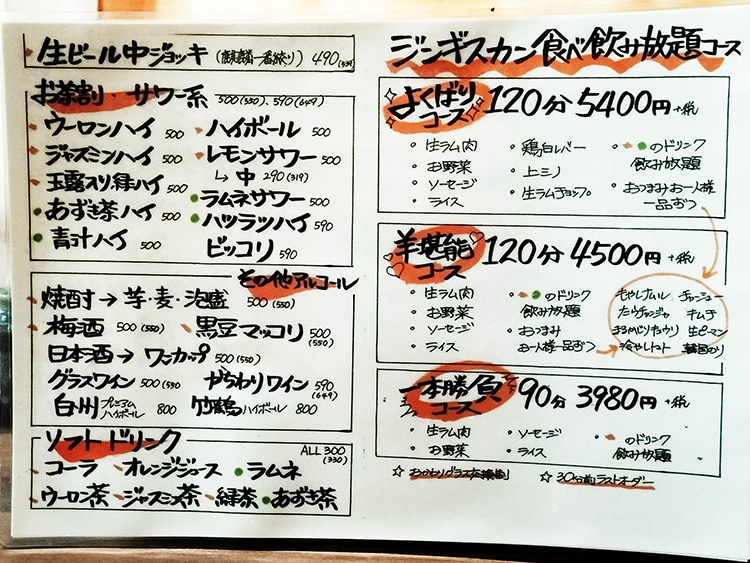 生ビール中ジョッキ (麒麟一番絞り) 490 (539)
お茶割・サワー系 500(550)、590(649)
ウーロンハイ 500
ジャスミンハイ 500
玉露入り緑ハイ 500
あずき茶ハイ 500
青汁ハイ 500
ハイボール 500
レモンサワー 500
↳ 中 290(319)
ラムネサワー 500
ハツラツハイ 590
ビッコリ 590
その他アルコール
焼酎→芋・麦・泡盛 500(550)
梅酒 500(550) 黒豆マッコリ 500(550)
日本酒→ワンカップ 500(550)
グラスワイン 500(550 がちわりワイン 590(649)
白州プレミアムハイボール 800 竹鶴ハイボール 800
ソフトドリンク ALL 300(330)
コーラ オレンジジュース ラムネ
ウーロン茶 ジャスミン茶 緑茶 あずき茶
ジンギスカン食べ飲み放題コース
よくばりコース 120分 5400円+税
・生ラム肉
・お野菜
・ソーセージ
・ライス
・鶏白レバー
・上ミノ
・生ラムチョップ
・のドリンク
飲み放題
・おつまみお一人様
一品ずつ
羊堪能コース 120分 4500円+税
・生ラム肉
・お野菜
・ソーセージ
・ライス
・のドリンク
飲み放題
・おつまみ
お一人様一品ずつ→
もやしナムル チャンジュー
たらチャンジャ キムチ
まるかじりキュウリ 生ピーマン
冷やしトマト 韓国のり
一本勝負コース 90分 3980円+税
・生ラム肉
・お野菜
・ソーセージ
・ライス
・のドリンク
飲み放題
☆おかわりグラス交換制 ☆30分前ラストオーダー